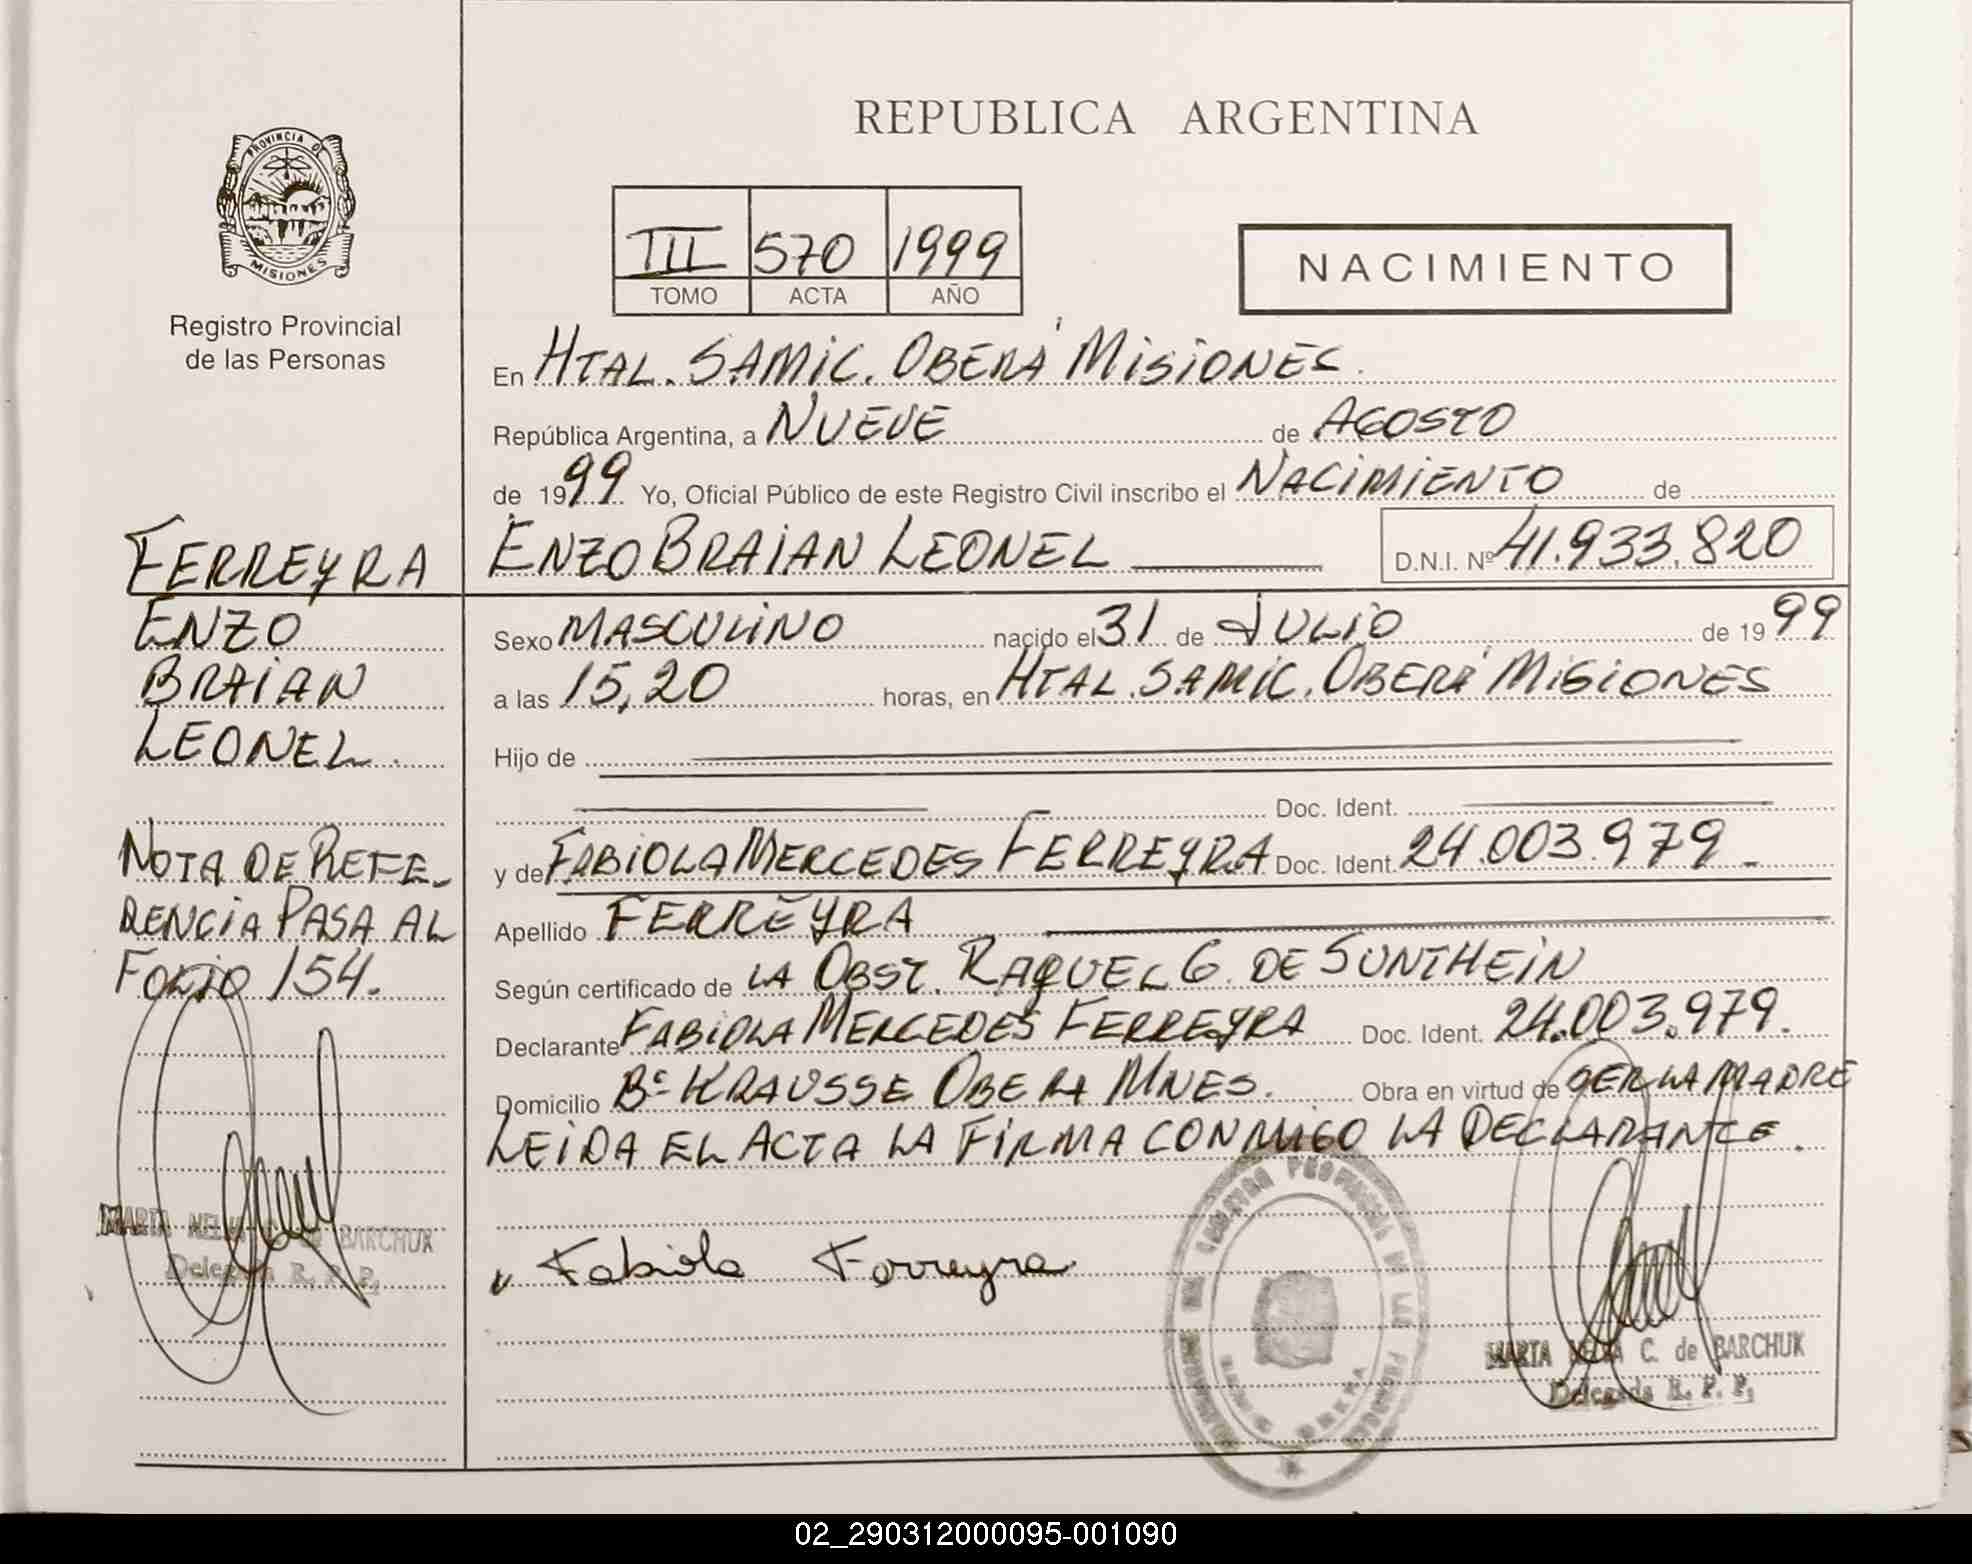 REPUBLICA ARGENTINA
PROVINCIA DE
MISIONES
Registro Provincial
de las Personas
III 570 1999
TOMO ACTA AÑO
NACIMIENTO
En HTAL. SAMIC. OBERÁ MISIONES.
República Argentina, a NUEVE de AGOSTO
de 1999 Yo, Oficial Público de este Registro Civil inscribo el NACIMIENTO de
ENZO BRAIAN LEONEL D.N.I. Nº 41.933.820
Sexo MASCULINO nacido el 31 de JULIO de 1999
a las 15,20 horas, en HTAL. SAMIC. OBERÁ MISIONES
Hijo de
Doc. Ident.
y de FABIOLA MERCEDES FERREYRA Doc. Ident. 24.003.979.
Apellido FERREYRA
Según certificado de LA OBST. RAQUEL G. DE SUNTHEIN
Declarante FABIOLA MERCEDES FERREYRA Doc. Ident. 24.003.979.
Domicilio Bº KRAUSSE OBERA MNES. Obra en virtud de SER LA MADRE
LEIDA EL ACTA LA FIRMA CONMIGO LA DECLARANTE.
Fabiola Ferreyra
MARTA C. de BARCHUK
Delegada R. P. P.
FERREYRA
ENZO
BRAIAN
LEONEL.
NOTA DE REFE-
RENCIA PASA AL
FOLIO 154.
MARTA BARCHUK
Delegada R. P. P.
02_290312000095-001090